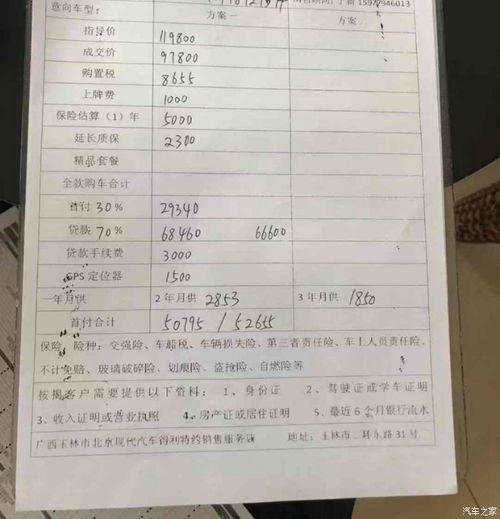 意向车型：
方案一 方案二
指导价 119800
成交价 97800
购置税 8655
上牌费 1000
保险估算（1）年 5000
延长质保 2300
精品套餐
全款购车合计
首付 30% 29340
贷款 70% 68460 66600
贷款手续费 3000
GPS 定位器 1500
一年月供 2年月供 2853 3年月供 1850
首付合计 50795 / 52655
保险，险种：交强险、车船税、车辆损失险、第三者责任险、车上人员责任险、
不计免赔、玻璃破碎险、划痕险、盗抢险、自燃险等
按揭客户需要提供以下资料：1、身份证 2、驾驶证或学车证明
3、收入证明或营业执照 4、房产证或居住证明 5、最近6个月银行流水
广西玉林市北京现代汽车得利特约销售服务店 地址：玉林市二环东路31号
汽车之家